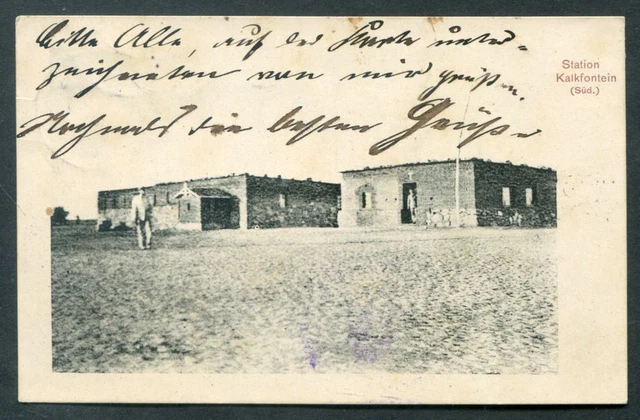 bitte Alle, auf der Karte unter-
zeichneten von mir grüßen.
Nochmals die besten Grüße
Station
Kalkfontein
(Süd.)